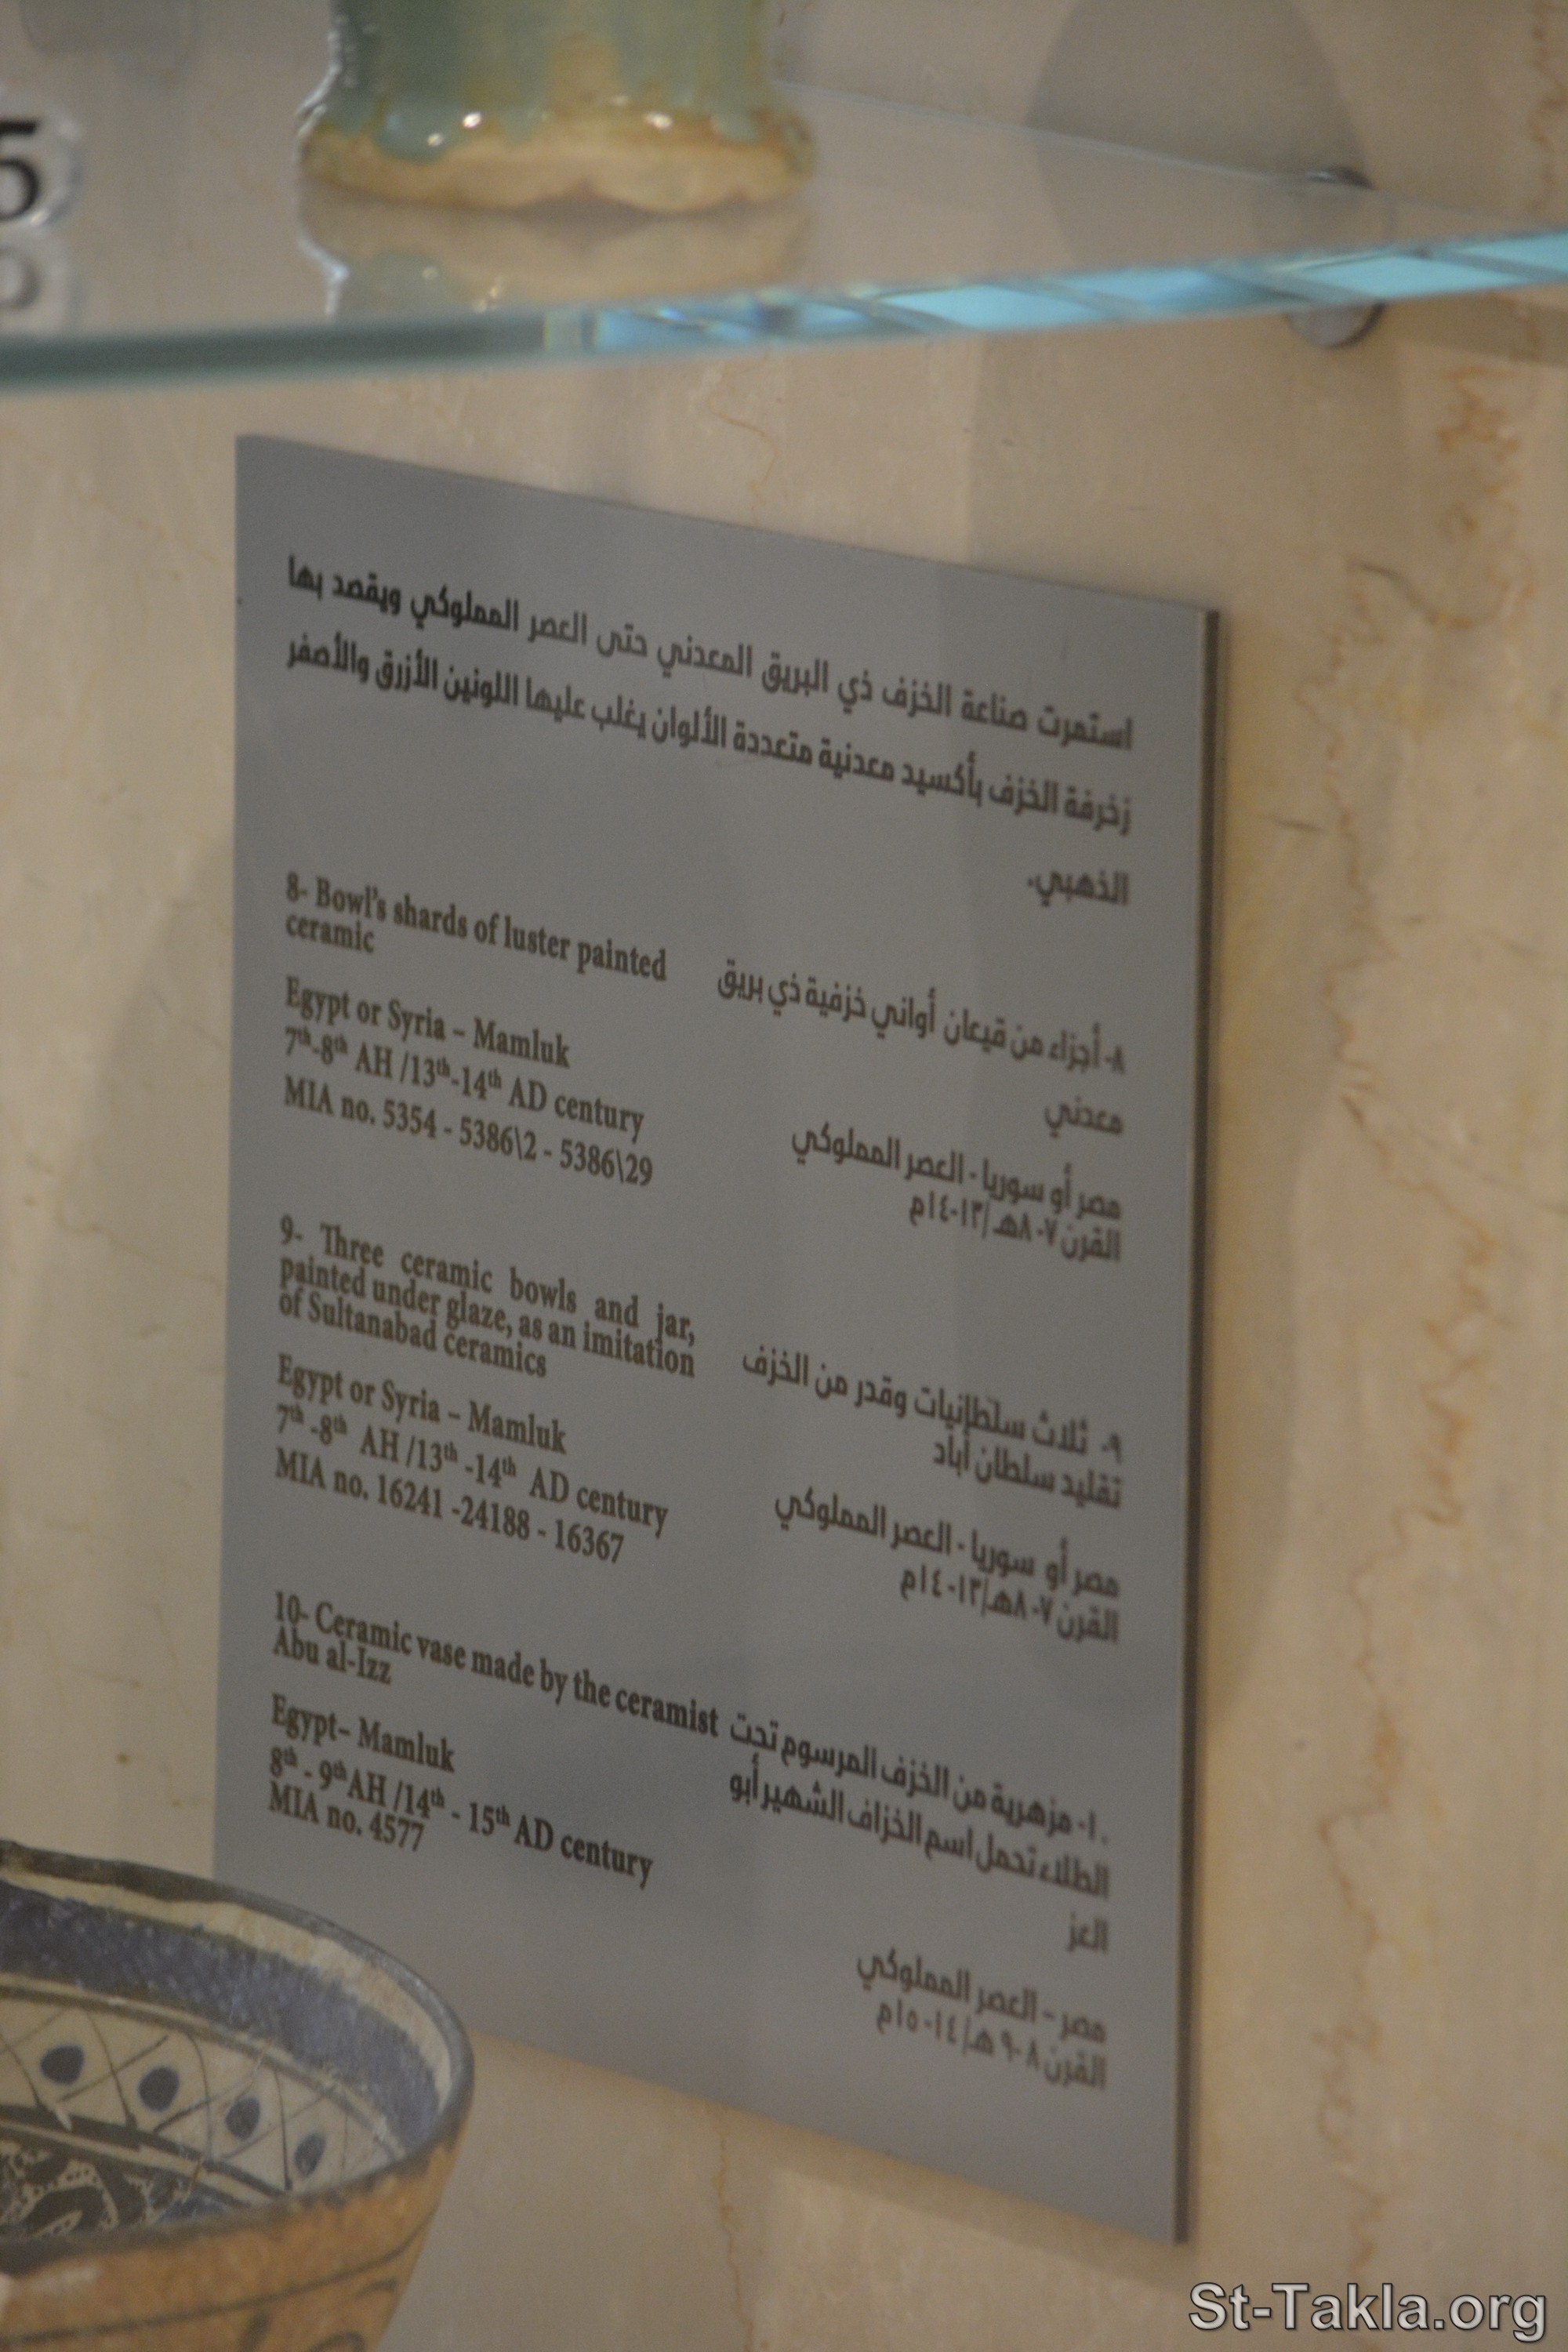 5
استمرت صناعة الخزف ذي البريق المعدني حتى العصر المملوكي ويقصد بها
زخرفة الخزف بأكسيد معدنية متعددة الألوان يغلب عليها اللونين الأزرق والأصفر
الذهبي.
8- Bowl's shards of luster painted
ceramic
Egypt or Syria – Mamluk
7th-8th AH /13th-14th AD century
MIA no. 5354 - 5386\2 - 5386\29
٨- أجزاء من قيعان أواني خزفية ذي بريق
معدني
مصر أو سوريا - العصر المملوكي
القرن ٧-٨هـ/١٣-١٤م
9- Three ceramic bowls and jar,
painted under glaze, as an imitation
of Sultanabad ceramics
Egypt or Syria – Mamluk
7th -8th AH /13th -14th AD century
MIA no. 16241 -24188 - 16367
٩- ثلاث سلطانيات وقدر من الخزف
تقليد سلطان أباد
مصر أو سوريا - العصر المملوكي
القرن ٧-٨هـ/١٣-١٤م
10- Ceramic vase made by the ceramist
Abu al-Izz
Egypt– Mamluk
8th - 9th AH /14th - 15th AD century
MIA no. 4577
١٠- مزهرية من الخزف المرسوم تحت
الطلاء تحمل اسم الخزاف الشهير أبو
العز
مصر – العصر المملوكي
القرن ٨-٩ هـ/١٤-١٥م
St-Takla.org